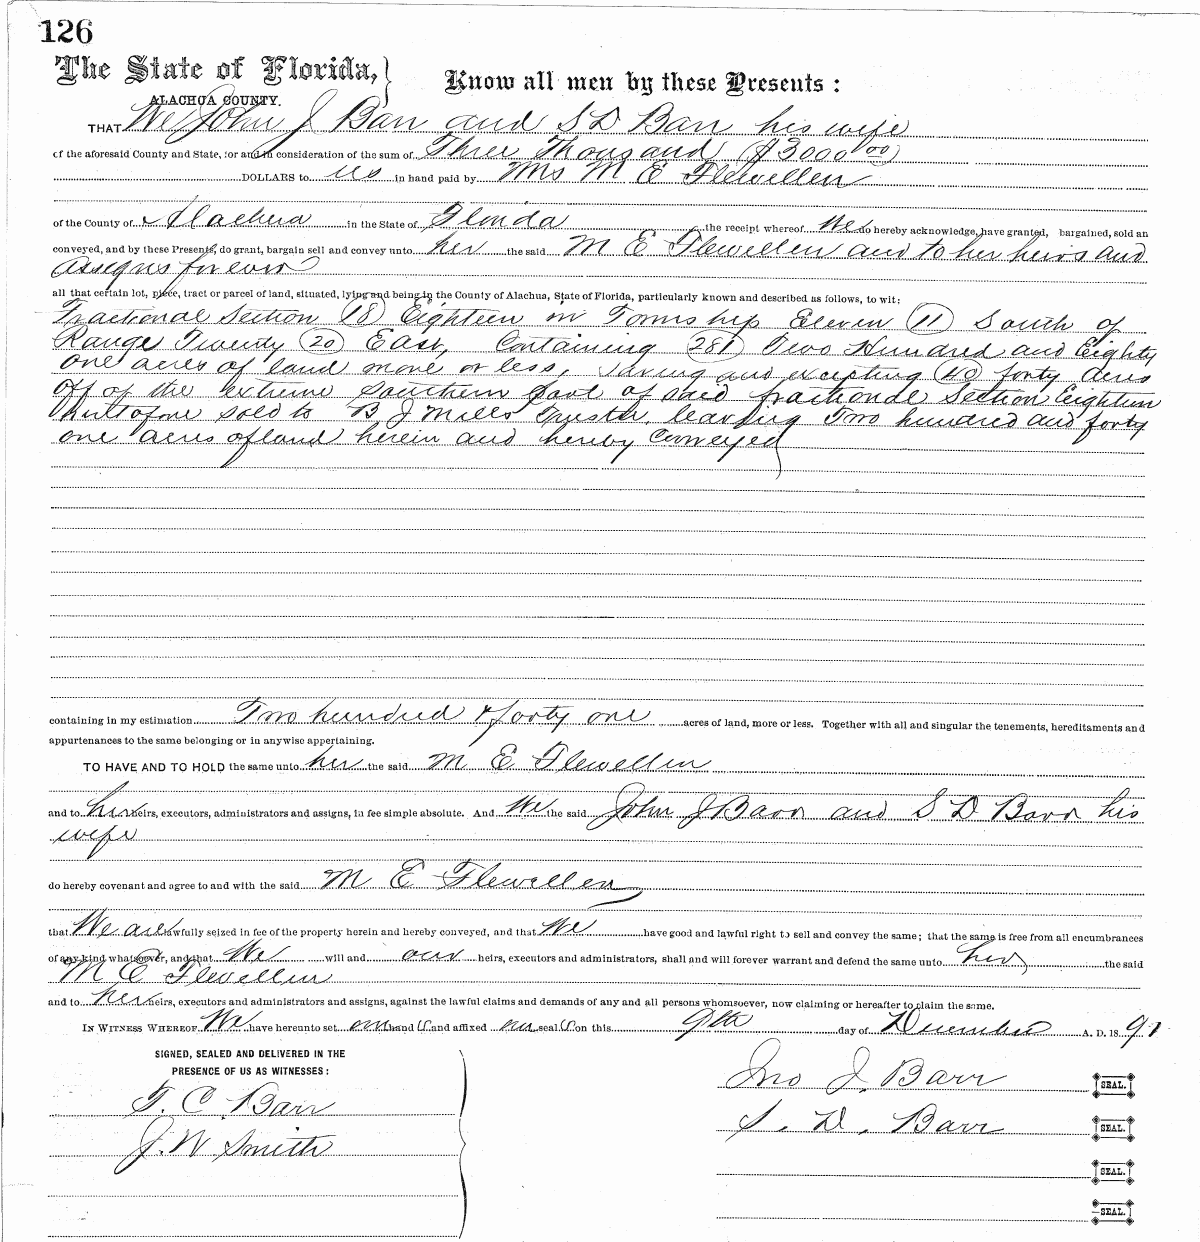 126
The State of Florida,
ALACHUA COUNTY.
Know all men by these Presents:
THAT We John J Barr and S D Barr his wife
of the aforesaid County and State, for and in consideration of the sum of Three Thousand ($3000.00)
DOLLARS to us in hand paid by Mrs M E Flewellen
of the County of Alachua in the State of Florida the receipt whereof We do hereby acknowledge, have granted, bargained, sold an
conveyed, and by these Presents, do grant, bargain sell and convey unto her the said M E Flewellen and to her heirs and
assigns forever
all that certain lot, piece, tract or parcel of land, situated, lying and being in the County of Alachua, State of Florida, particularly known and described as follows, to wit:
Fractional Section (18) Eighteen in Township Eleven (11) South of
Range Twenty (20) East, Containing (281) Two Hundred and Eighty
one acres of land more or less, saving and excepting (40) forty acres
off of the extreme southern part of said fractional Section Eighteen
heretofore sold to B J Mills Trustee, leaving Two hundred and forty
one acres of land herein and hereby Conveyed
containing in my estimation Two hundred & forty one acres of land, more or less. Together with all and singular the tenements, hereditaments and
appurtenances to the same belonging or in anywise appertaining.
TO HAVE AND TO HOLD the same unto her the said M E Flewellen
and to her heirs, executors, administrators and assigns, in fee simple absolute. And We the said John J Barr and S D Barr his
wife
do hereby covenant and agree to and with the said M E Flewellen
that We are lawfully seized in fee of the property herein and hereby conveyed, and that We have good and lawful right to sell and convey the same; that the same is free from all encumbrances
of any kind whatsoever, and that We will and our heirs, executors and administrators, shall and will forever warrant and defend the same unto her the said
M E Flewellen
and to her heirs, executors and administrators and assigns, against the lawful claims and demands of any and all persons whomsoever, now claiming or hereafter to claim the same.
IN WITNESS WHEREOF We have hereunto set our hand s and affixed our seal s on this 9th day of December A. D. 18 91
SIGNED, SEALED AND DELIVERED IN THE
PRESENCE OF US AS WITNESSES:
T. C. Barr
J. W Smith
Jno J. Barr SEAL.
S. D. Barr SEAL.
SEAL.
SEAL.